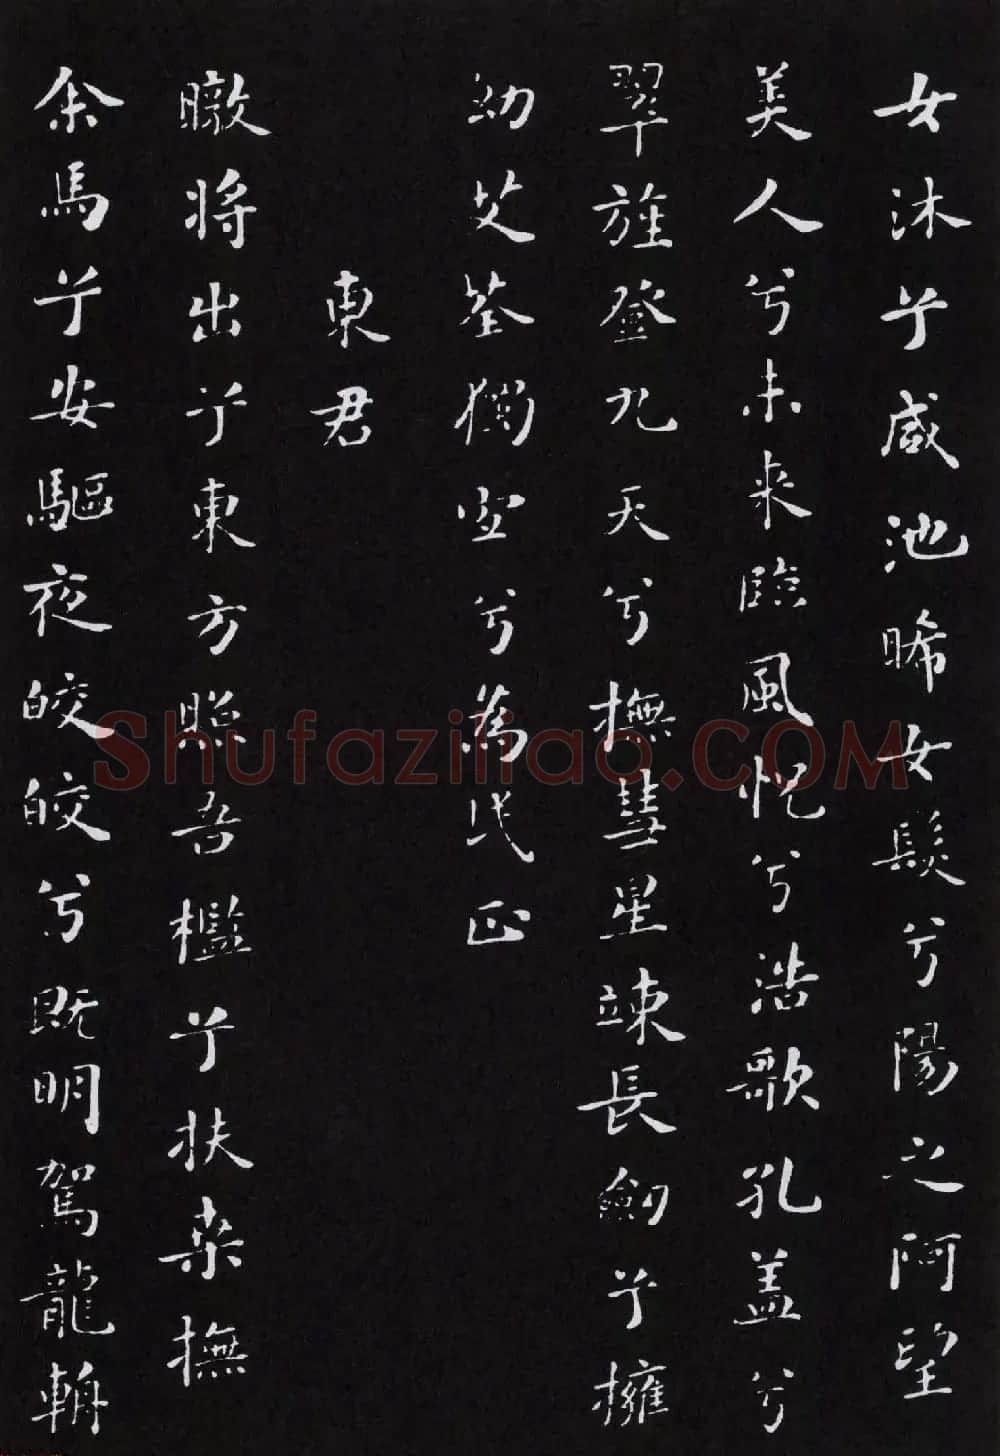 女沐兮咸池晞女髮兮陽之阿望
美人兮未來臨風怳兮浩歌孔盖兮
翠旌登九天兮撫彗星竦長劍兮擁
幼艾荃獨宜兮為民正
東君
暾將出兮東方照吾檻兮扶桒撫
余馬兮安驅夜皎皎兮既明駕龍輈
Shufaziliao.COM